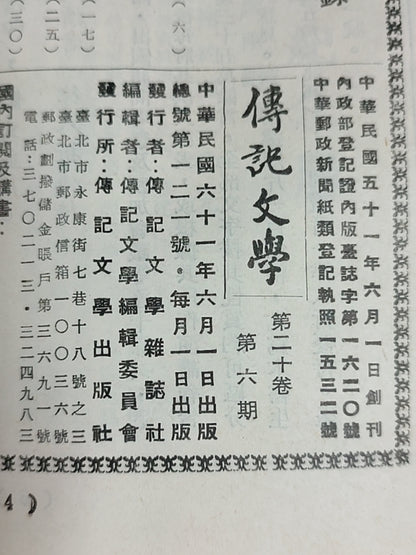 （一七）
（二五）
（三〇）
（六）
錄
中華民國五十一年六月一日創刊
內政部登記證內版臺誌字第一六二〇號
中華郵政新聞紙類登記執照一五三二號
傳記文學
第二十卷
第六期
中華民國六十一年六月一日出版
總號第一二一號。每月一日出版
發行者：傳記文學雜誌社
編輯者：傳記文學編輯委員會
發行所：傳記文學出版社
臺北市永康街七巷十八號之三
臺北市郵政信箱一〇〇三六號
郵政劃撥儲金賬戶第三六九一號
電話：三七〇二一三・三二四九八三
國內訂閱及購書：
4）